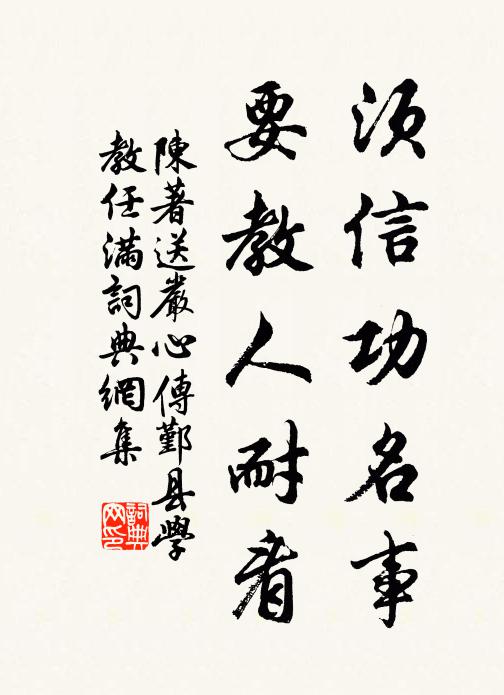 須信功名事
要教人耐看
陳著送嚴心傳鄞县學
教任滿詞典網集
詞典
网印